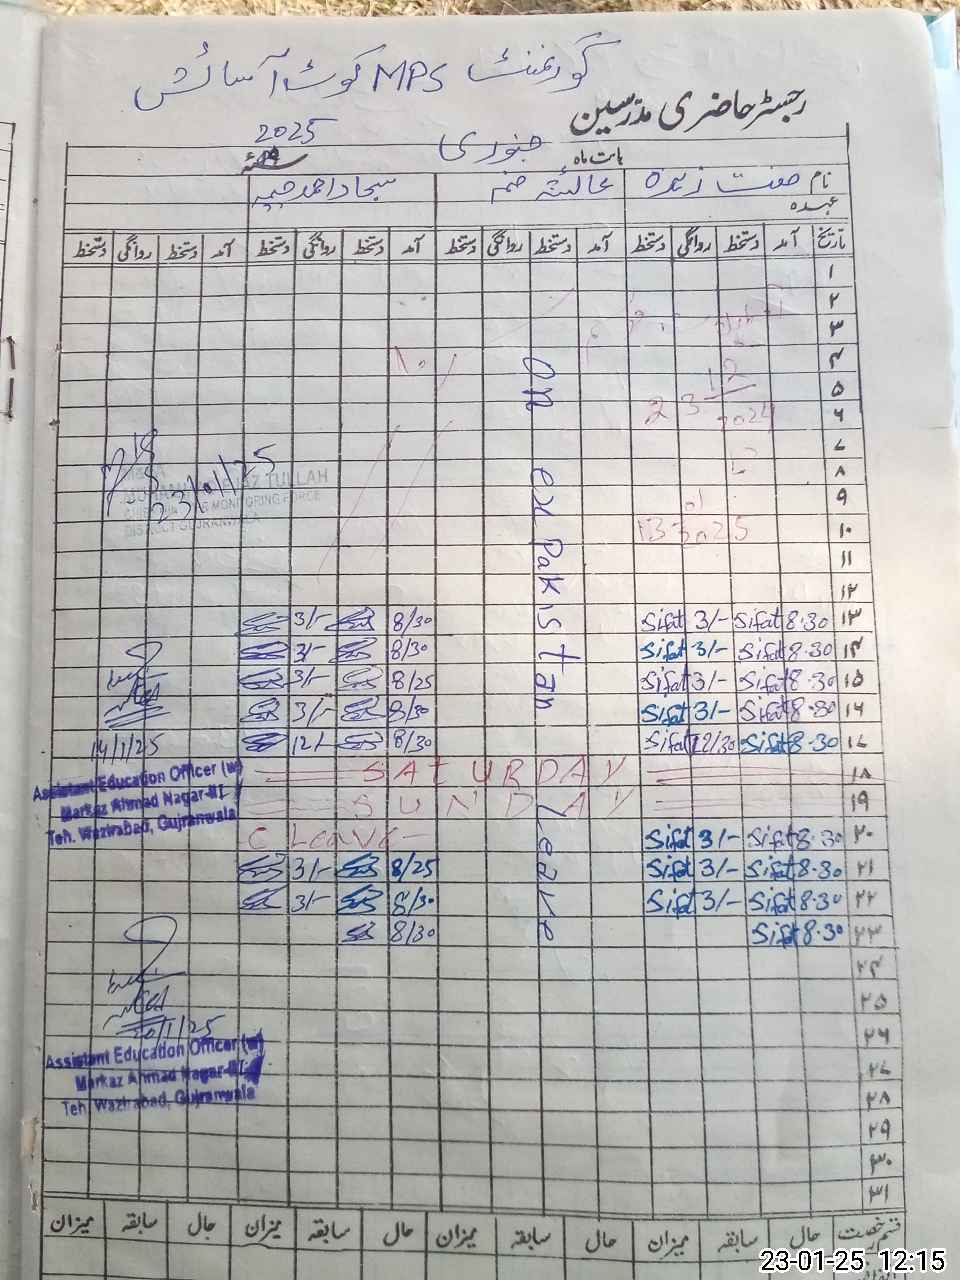 گورنمنٹ MPS کوٹ آسائش
رجسٹر حاضری مدرسین
بابت ماہ جنوری 2025
نام صفت زہرہ عائشہ صنم سجاد احمد چیمہ
عہدہ
تاریخ آمد دستخط روانگی دستخط آمد دستخط روانگی دستخط آمد دستخط روانگی دستخط آمد دستخط روانگی دستخط
۱
۲
۳
۴
۵
۶
۷
۸
۹
۱۰
۱۱
۱۲
۱۳ 8.30 Sifat 3/- Sifat 8/30 3/-
۱۴ 8.30 Sifat 3/- Sifat 8/30 3/-
۱۵ 8.30 Sifat 3/- Sifat 8/25 3/-
۱۶ 8.30 Sifat 3/- Sifat 8/30 3/-
۱۷ 8.30 Sifat 12/30 Sifat 8/30 12/-
۱۸ SATURDAY
۱۹ SUNDAY
۲۰ 8.30 Sifat 3/- Sifat C Leave
۲۱ 8.30 Sifat 3/- Sifat 8/25 3/-
۲۲ 8.30 Sifat 3/- Sifat 8/30 3/-
۲۳ 8.30 Sifat 8/30
۲۴
۲۵
۲۶
۲۷
۲۸
۲۹
۳۰
۳۱
on ex Pakistan Leave
12
23
2024
01
13 2025
23/01/25
TULLAH
MONITORING FORCE
DISTRICT GUJRANWALA
14/1/25
Assistant Education Officer (w)
Markaz Ahmad Nagar-III
Teh. Wazirabad, Gujranwala
20/1/25
Assistant Education Officer (w)
Markaz Ahmad Nagar-III
Teh. Wazirabad, Gujranwala
حال سابقہ میزان حال سابقہ میزان حال سابقہ میزان حال سابقہ میزان
23-01-25 12:15